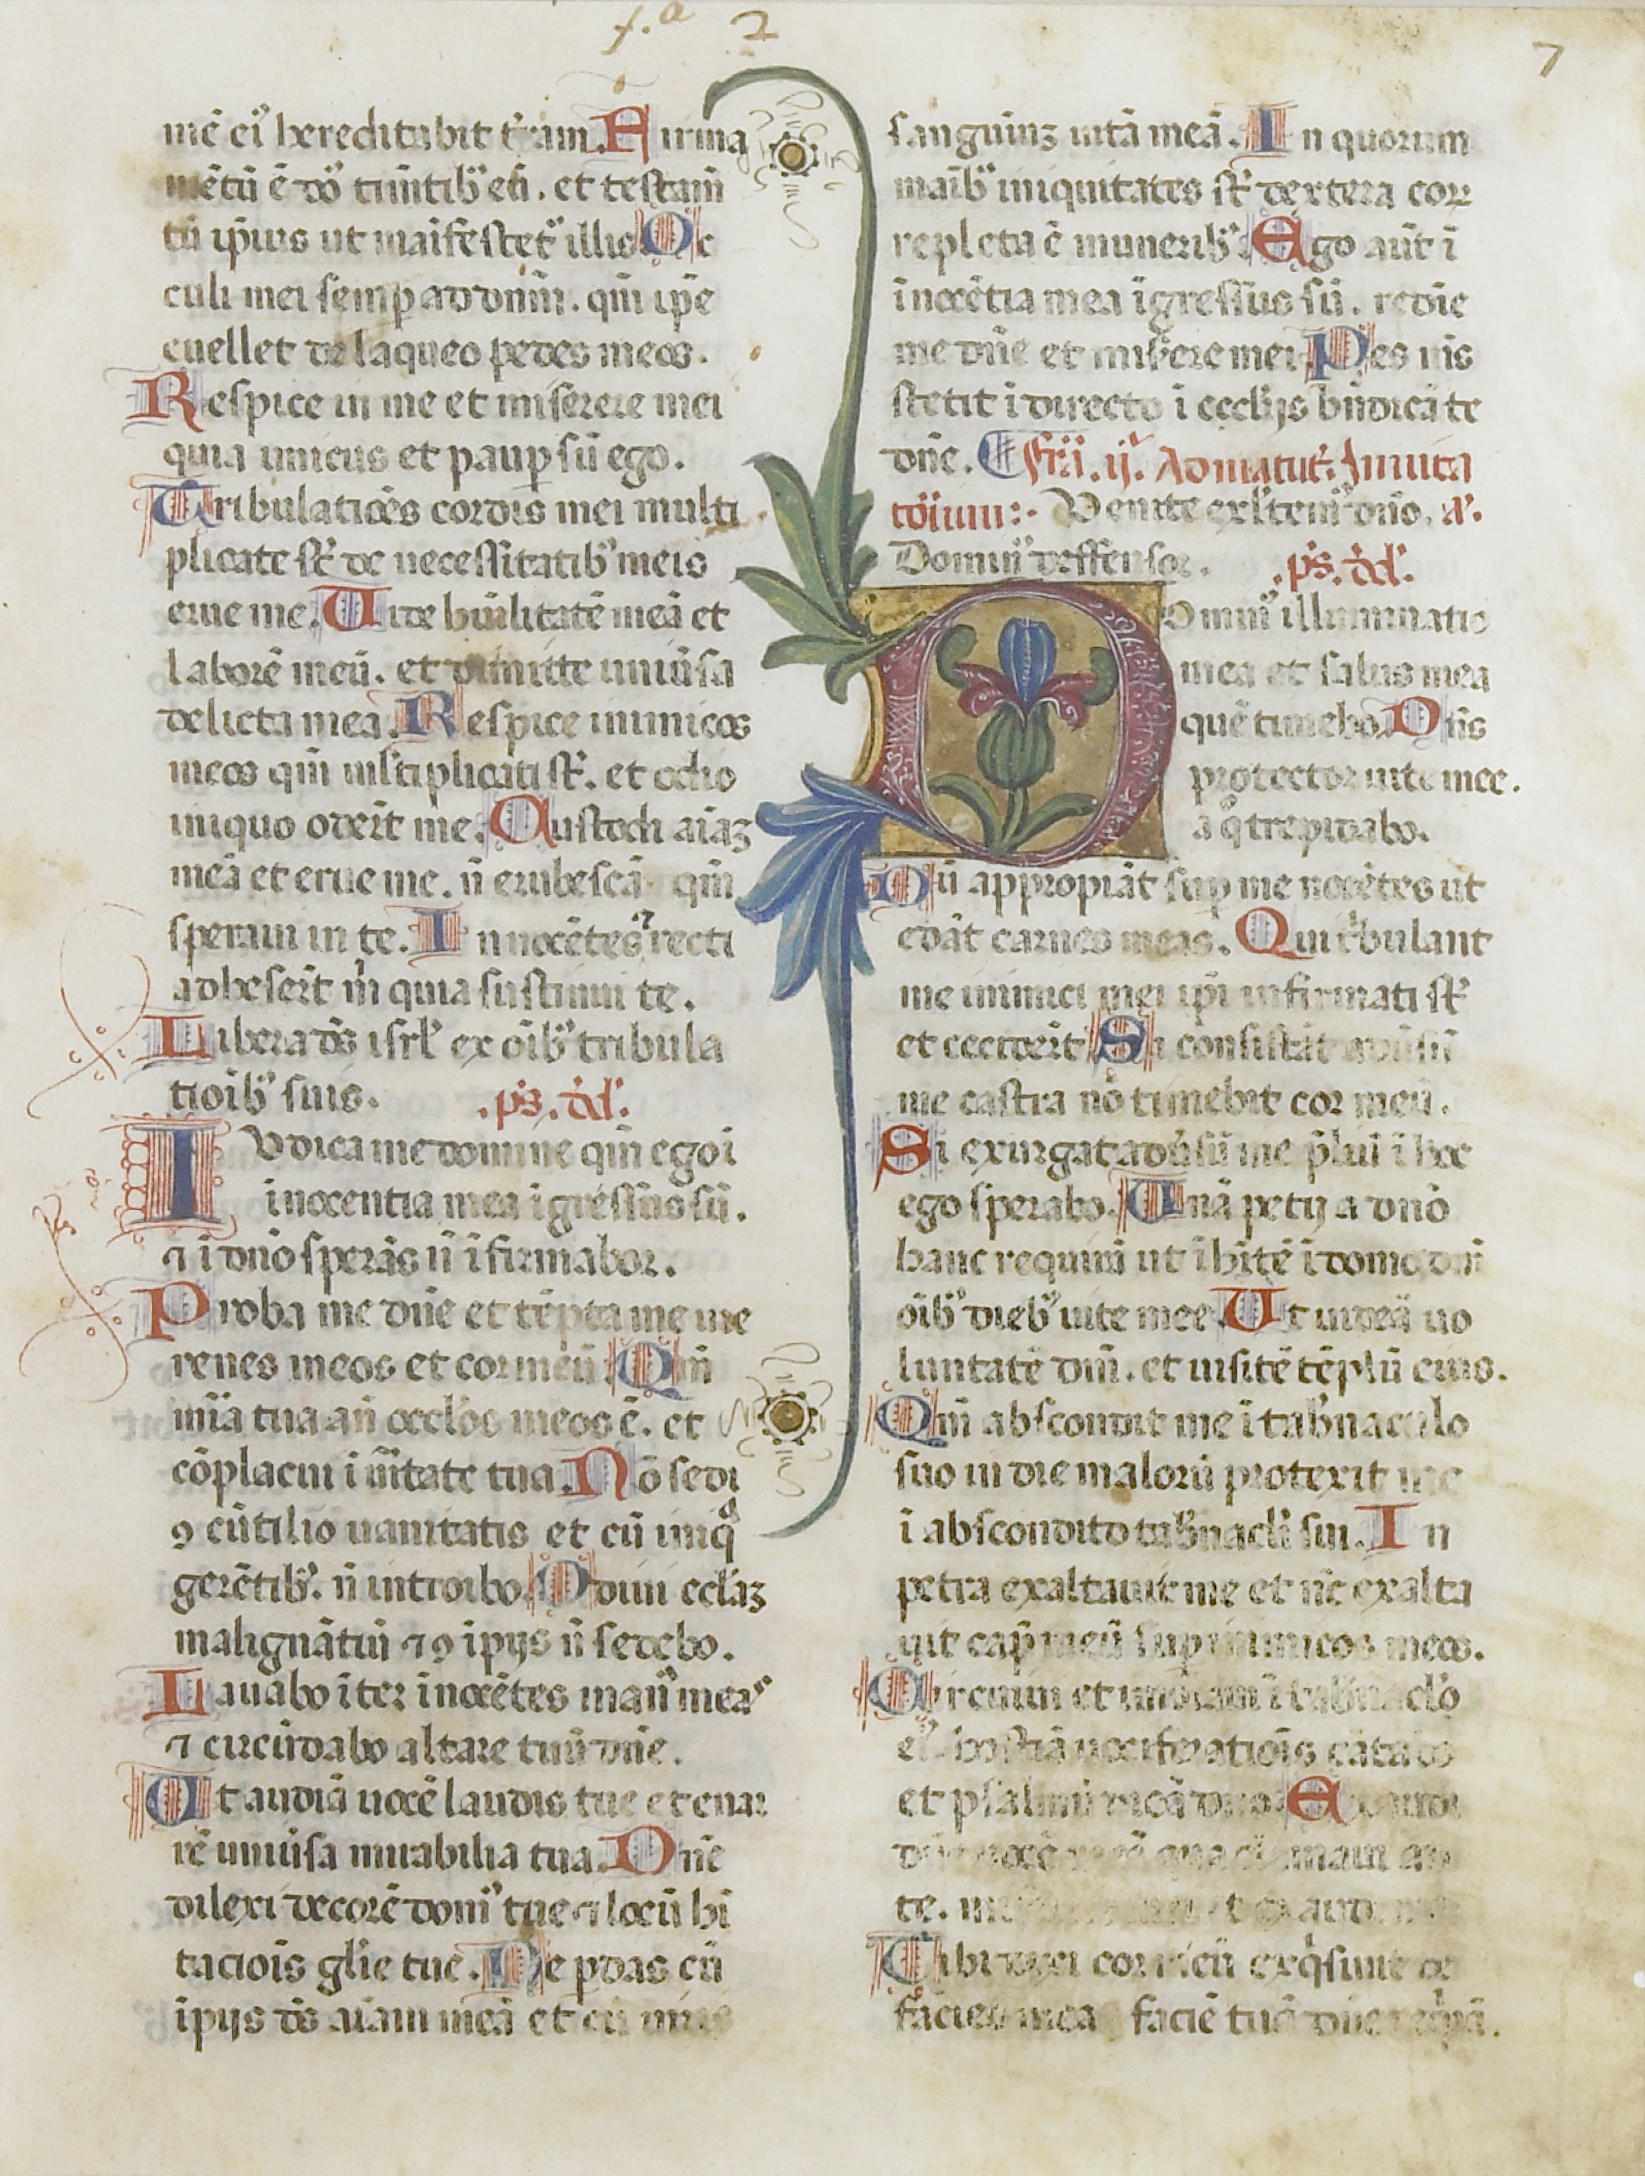 f.a 2
7
mē ei' hereditabit t'ram. Firma
mētū ē dō' timētib' eū. et testam̄
tū ip̄ius ut maifestet' illis Oc
culi mei semp ad dnm̄. qm̄ ip̄e
euellet de laqueo pedes meos.
Respice in me et miserere mei
quia unicus et paup sū ego.
Tribulatiōes cordis mei multi
plicate st̄ de necessitatib' meis
erue me. Uide hūilitatē meā et
laborē meū. et dimitte uniūsa
delicta mea. Respice inimicos
meos qm̄ mltiplicati st̄. et odio
iniquo odert̄ me. Custodi aiaʒ
meā et erue me. n̄ erubescā qm̄
speraui in te. Innocētes ⁊ recti
adhesert̄ m̄ quia sustinui te.
Libera ds̄ isrl' ex oīb' tribula
tioīb' suis. .ps. dd'.
Iudica me domine qm̄ ego ī
inocentia mea īgressus sū.
⁊ ī dn̄o sperās n̄ īfirmabor.
Proba me dn̄e et tēpta me ure
renes meos et cor meū. Qm̄
mīa tua an̄ occl'os meos ē. et
cōplacui ī ūitate tua. Nō sedi
ꝯ cū̄tilio uanitatis et cū iniq̄
gerētib'. n̄ introibo. Odiui eclāʒ
malignātiū ⁊ ꝯ īpijs n̄ sedebo.
Lauabo īter īnocētes man' meas
⁊ circūdabo altare tuū dn̄e.
Ut audiā uocē laudis tue et enar
rē uniūsa mirabilia tua. Dn̄e
dilexi decorē dom' tue ⁊ locū hī
tacioīs glīe tue. Ne pdas cū
īpijs ds̄ aīam meā et cū uiris
sanguinʒ uitā meā. In quorum
maīb' iniquitates st̄ dextera eorʒ
repleta ē munerib'. Ego aūt ī
īnocētia mea īgressus sū. redīe
me dn̄e et miserere mei. Pes m̄s
stetit ī directo ī eccl'ijs bn̄dicā te
dn̄e. Fr̄ia. ij. Ad matut'. Inuita
toīum:. Uenite exl'tem' dn̄o. a'.
Domin' deffensor. .ps. dd'.
Domin' illuminatio
mea et salus mea
quē timebo. Dn̄s
protector uite mee.
a q̄ trepidabo.
Dū appropiāt sup me nocētes ut
edāt carnes meas. Qui t'bulant
me inimici mei ip̄i infirmati st̄
et cecidert̄ Si consistāt aduūsū
me castra nō timebit cor meū.
Si exurgat aduūsū me p̄liū ī hoc
ego sperabo. Unā petij a dn̄o
hanc requirā ut īhītē ī domo dn̄i
oīb' dieb' uite mee. Ut uideā uo
luntatē dn̄i. et uisitē tēplū eius.
Qm̄ abscondit me ī tab'naculo
suo in die malorū protexit me
ī abscondito tab'nacl'i sui. In
petra exaltauit me et nc̄ exalta
uit cap̄ meū sup inimicos meos.
Circuiui et īmolaui ī tab'naclo
ei' hostiā uociferatioīs cātabo
et psalmū dicā dn̄o. Exaudi
dn̄e uocē meā qua clamaui ad
te. et exaudi me
Tibi dixi cor meū exq̄siuit te
facies mea faciē tuā dn̄e reqrā.